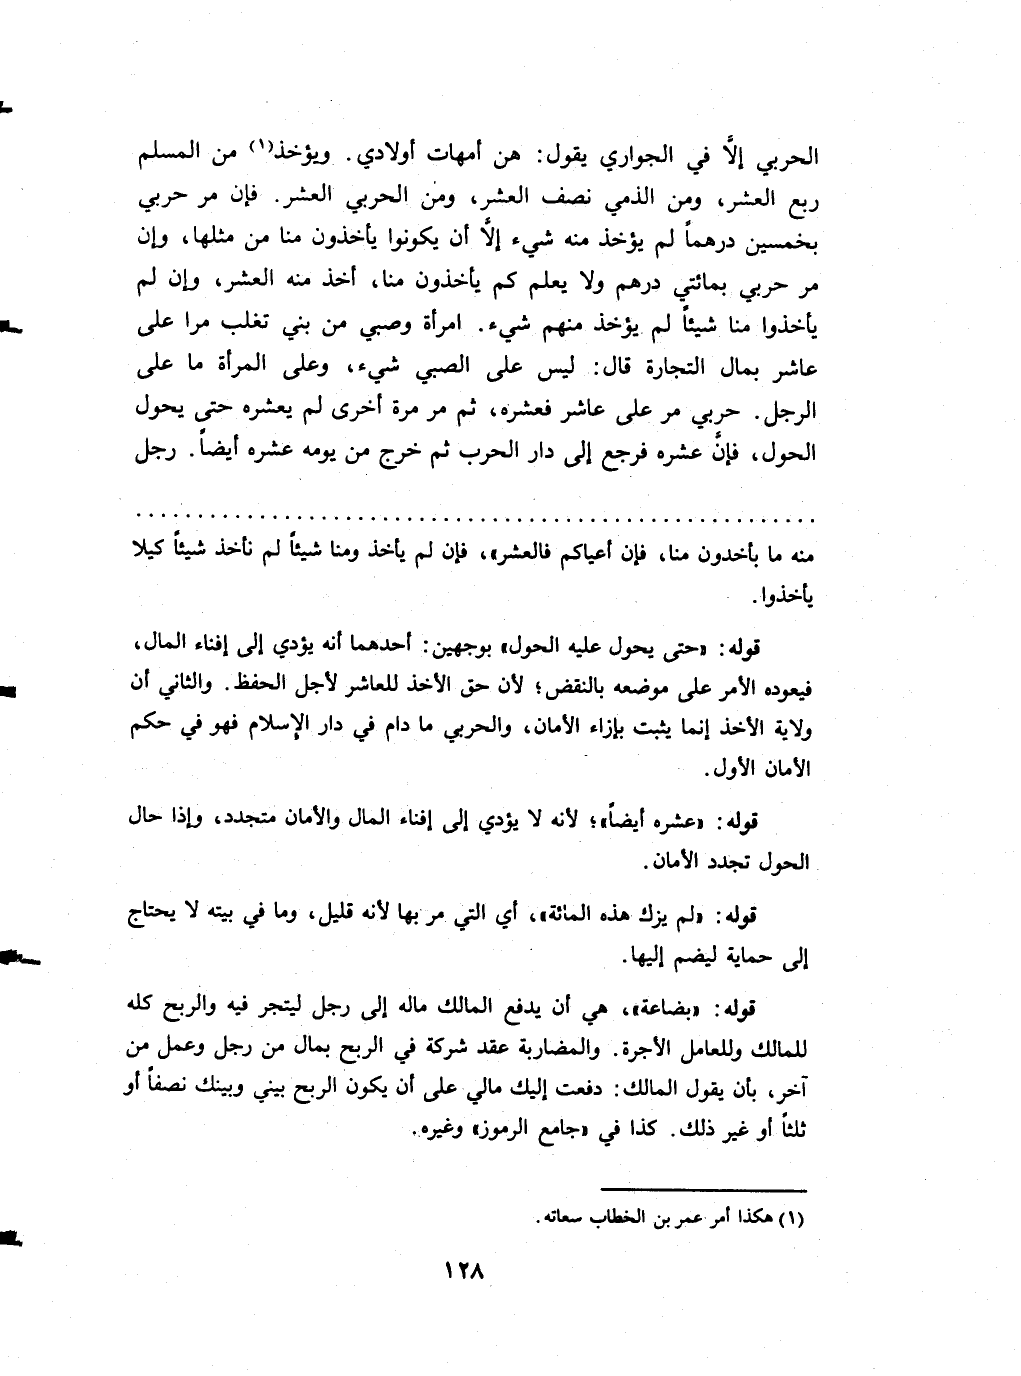 الحربي إلَّا في الجواري يقول: هن أمهات أولادي. ويؤخذ(١) من المسلم
ربع العشر، ومن الذمي نصف العشر، ومن الحربي العشر. فإن مر حربي
بخمسين درهماً لم يؤخذ منه شيء إلَّا أن يكونوا يأخذون منا من مثلها، وإن
مر حربي بمائتي درهم ولا يعلم كم يأخذون منا، أخذ منه العشر، وإن لم
يأخذوا منا شيئاً لم يؤخذ منهم شيء. امرأة وصبي من بني تغلب مرا على
عاشر بمال التجارة قال: ليس على الصبي شيء، وعلى المرأة ما على
الرجل. حربي مر على عاشر فعشره، ثم مر مرة أخرى لم يعشره حتى يحول
الحول، فإنَّ عشره فرجع إلى دار الحرب ثم خرج من يومه عشره أيضاً. رجل
منه ما بأخدون منا، فإن أعياكم فالعشر»، فإن لم يأخذ ومنا شيئاً لم نأخذ شيئاً كيلا
يأخذوا.
قوله: «حتى يحول عليه الحول» بوجهين: أحدهما أنه يؤدي إلى إفناء المال،
فيعوده الأمر على موضعه بالنقض؛ لأن حق الأخذ للعاشر لأجل الحفظ. والثاني أن
ولاية الأخذ إنما يثبت بإزاء الأمان، والحربي ما دام في دار الإسلام فهو في حكم
الأمان الأول.
قوله: «عشره أيضاً»؛ لأنه لا يؤدي إلى إفناء المال والأمان متجدد، وإذا حال
الحول تجدد الأمان.
قوله: «لم يزك هذه المائة»، أي التي مر بها لأنه قليل، وما في بيته لا يحتاج
إلى حماية ليضم إليها.
قوله: «بضاعة»، هي أن يدفع المالك ماله إلى رجل ليتجر فيه والربح كله
للمالك وللعامل الأجرة. والمضاربة عقد شركة في الربح بمال من رجل وعمل من
آخر، بأن يقول المالك: دفعت إليك مالي على أن يكون الربح بيني وبينك نصفاً أو
ثلثاً أو غير ذلك. كذا في «جامع الرموز» وغيره.
(١) هكذا أمر عمر بن الخطاب سعاته.
١٢٨